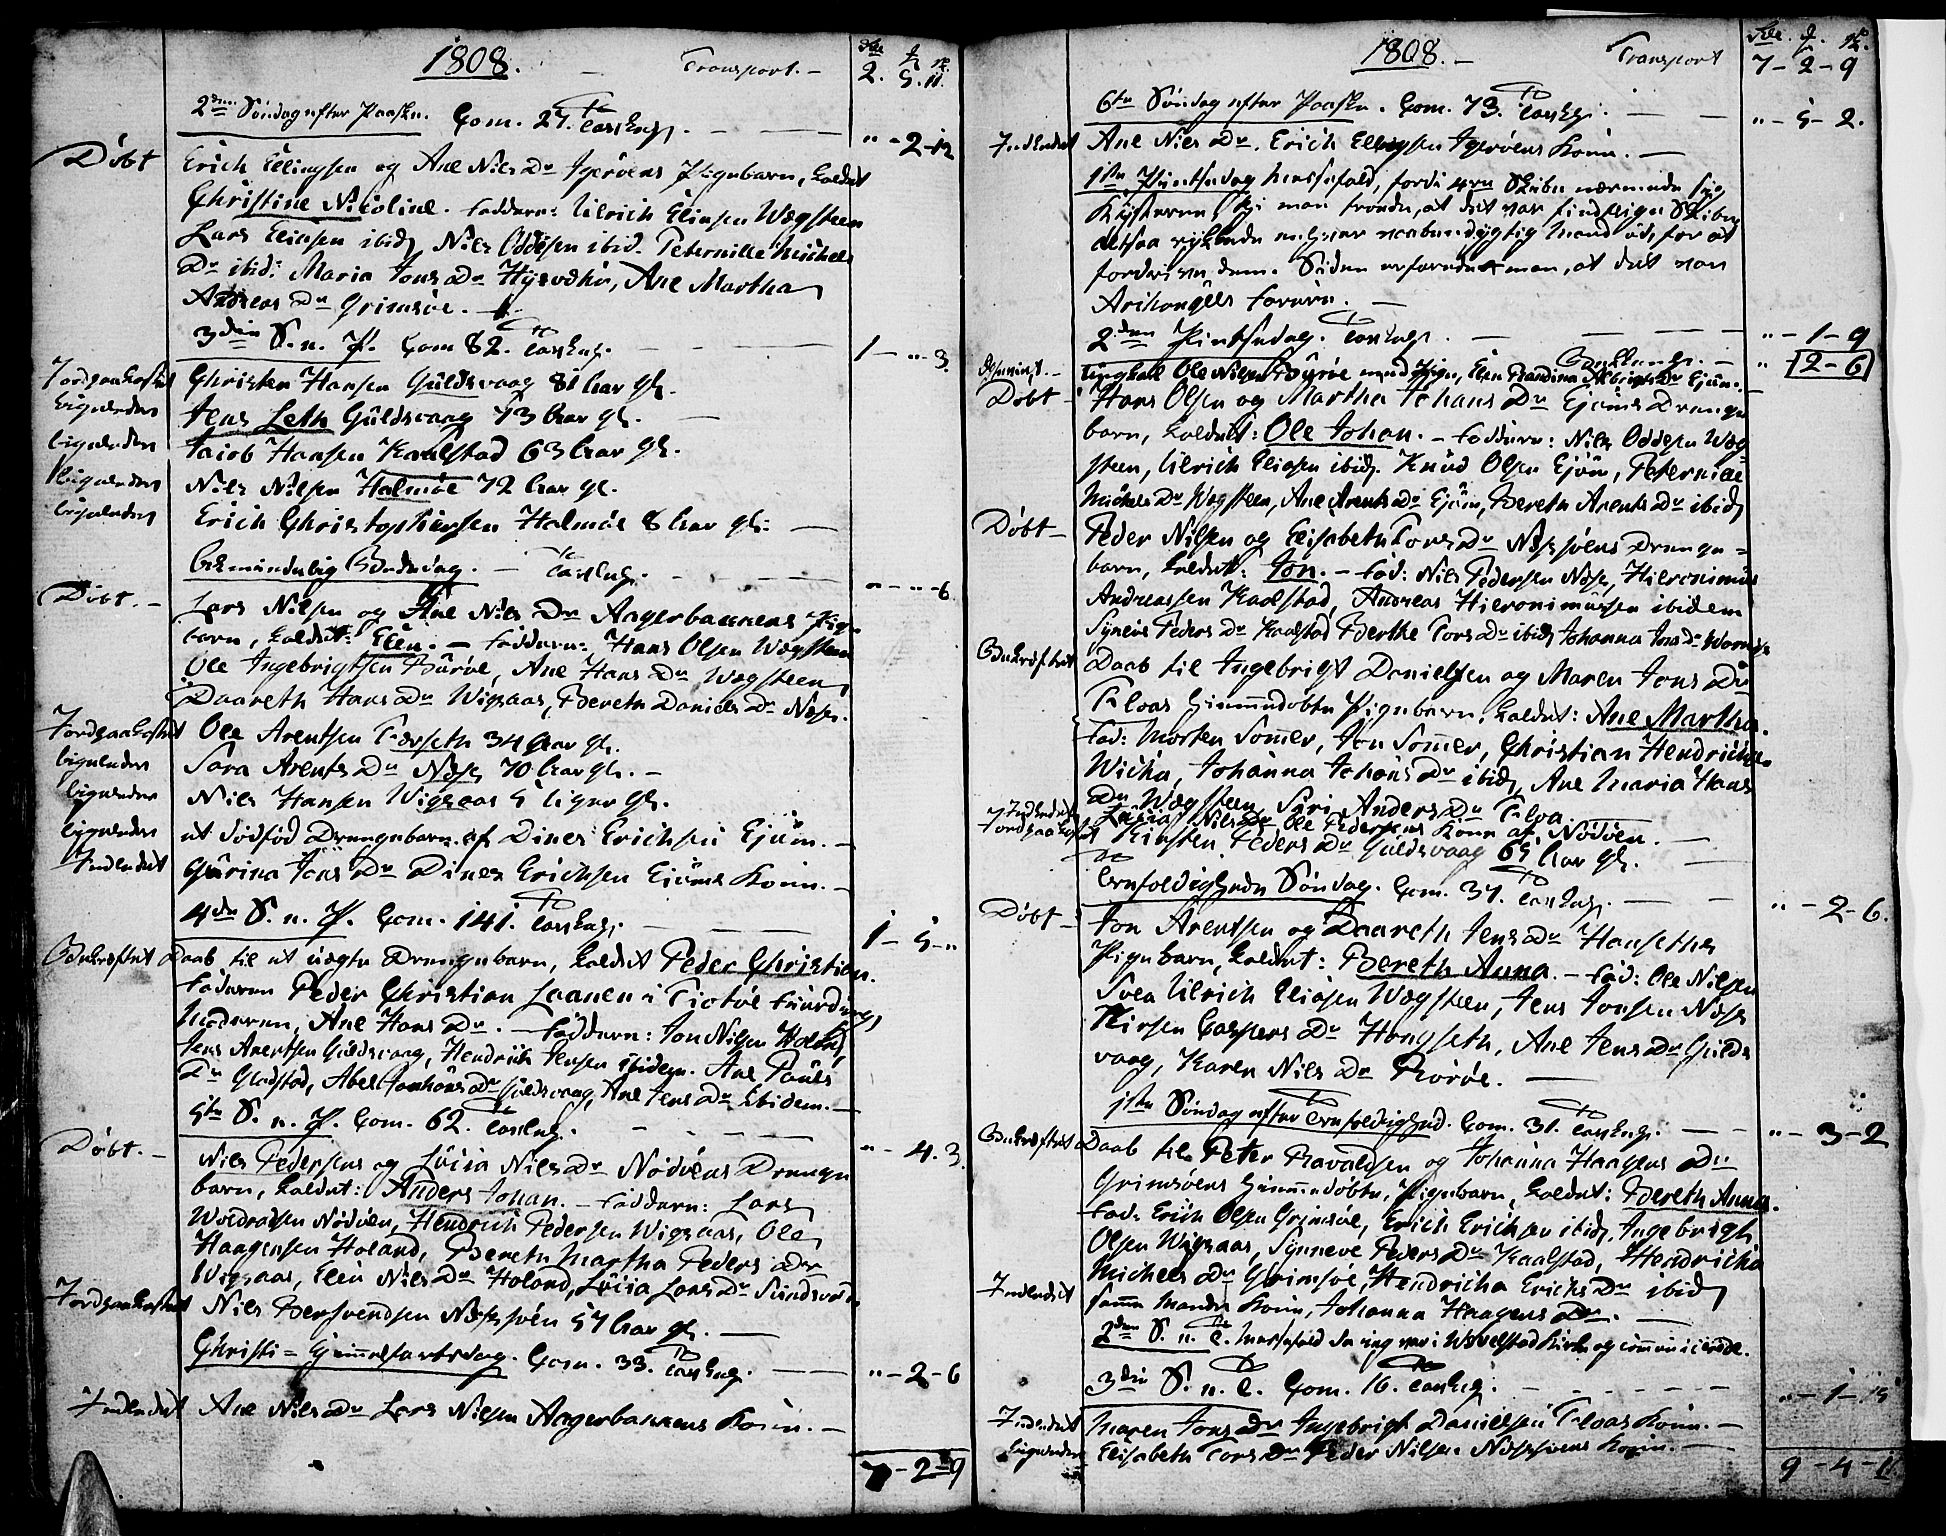 1808. – Transport. –
2. 5. 11.
2den Søndag efter Paaske. Com. 27. Tavlepg. – – "-2-12
Døbt Erich Ellingsen og Ane Nils Dr Igerøens Pigebarn, kaldet
Christine Nicoline. Faddere: Ulrich Eliasen Wægsteen
Lars Eliasen ibid, Nils Oddesen ibid. Peternille Michels
Dr ibid: Maria Jons Dr Hysvdhr, Ane Martha
Andreas Dr Grimsøe.
3die S. n. P. Com 82. Tavlepg. 1 - " - 3.
Jordpaakastet Christen Hansen Guldsvaag 81 Aar gl.
Ligeledes Jens Leth Guldsvaag 73 Aar gl.
Ligeledes Jacob Hansen Kaalstad 63 Aar gl.
Ligeledes Nils Nilsen Halmøe 72 Aar gl.
Ligeledes Erich Christophersen Halmøe 8 Aar gl:
Almindelig Bededag. – Tavlepg. " - " - 6
Døbt. – Lars Nilsen og Ane Nils Dr Aagerbaukens Pige
barn, kaldet: Elen. – Faddere: Hans Olsen Wægsteen
Ole Ingebrigtsen Burøe, Ane Hans Dr Wægsteen,
Daareth Hans Dr Wigsaas, Bereth Daniels Dr Næss.
Jordpaakastet Ole Arentsen Torseth 34 Aar gl.
Ligeledes Sara Arents Dr Næss 70 Aar gl. –
Ligeledes Nils Hansen Wigsaas 5 Uger gl.
Ligeledes et dødfød Drengebarn af Dines Erichsen Ejum. –
Indledet Gurina Jons Dr Dines Erichsen Ejums Kone. –
4de S. n. P. Com. 141. Tavlepg. 1 - 5 - "
Bekræftet Daab til et uægte Drengebarn, kaldet Peder Christian.
Faderen Peder Christian Laanen i Tiotøe
Moderen, Ane Hans Dr. – Faddere: Jon Nilsen Holand,
Jens Arentsen Guldsvaag, Hendrich Jensen ibidem. Ane Pauls
Dr Gladstad, Abel Dr Guldsvaag, Ane Jens Dr ibidem. –
5te S. n. P. Com. 62. Tavlepg. " - 4. 3.
Døbt. – Nils Pedersens og Lucia Nils Dr Nødøens Drenge
barn, kaldet: Anders Johan. – Faddere: Lars
Nødøen, Hendrich Pedersen Wigsaas, Ole
Haagensen Holand, Bereth Martha Peders Dr
Wigsaas, Elen Nils Dr Holand, Lucia Lars Dr
Jordpaakastet Nils Bersvendsen Næssøen 57 Aar gl. –
Christi = Himmelfartsdag. Com. 33. Tavlepg. " - 2 - 6
Indledet Ane Nils Dr Lars Nilsen Aagerbaukens Kone. –
7 - 2 - 9
1808. – Transport 7 - 2 - 9
6te Søndag efter Paaske. Com. 73. Tavlepg. " - 5 - 2.
Indledet Ane Nils Dr. Erich Ellingsen Igerøens Kone. –
1ste Pintsedag Messefald, fordi 4re Skibe nærmede sig
Kysterne, thi man troede, at det var fiendtlige Skibe,
altsaa rykkede enhver vaabendygtig Mand ud, for at
fordrive dem. Siden erfarede man, at det var
Archangels Farere. –
2den Pintsedag. Tavlepg. " - 1 - 9
" 2 - 6
Ungkarl Ole Nilsen Burøe med Pige, Elen Dr Ejum. –
Døbt – Hans Olsen og Martha Johans Dr Ejums Drenge
barn, kaldet: Ole Johan. – Faddere: Nils Oddesen Wæg-
steen, Ulrich Eliasen ibid. Knud Olsen Ejum, Peternille
Michels Dr Wægsteen, Ane Arents Dr Ejum, Bereth Arents Dr ibid
Døbt – Peder Nilsen og Elisabeth Tors Dr Næssøens Drenge =
barn, kaldet: Jon. – Fad: Nils Pedersen Næss, Hieronimus
Andreassen Kaalstad, Andreas Hieronimussen ibidem
Synnev Peders Dr Kaalstad Berthe Tors Dr ibid, Johanna Jons Dr
Bekræftet Daab til Ingebrigt Danielsen og Maren Jons Dr
Floas hiemmedøbte Pigebarn, kaldet: Ane Martha.
Fad: Morten Sommer, Jon Sommer, Christian Hendrichs-
Wicha, Johanna Johans Dr ibid, Ane Maria Hans
Dr Wægsteen, Siri Anders Dr Floa.
Indledet Lucia Nils Dr Ole Pedersens Kone af Nødøen.
Jordpaakastet Kirsten Peders Dr Guldsvaag 65 Aar gl.
Trefoldigheds Søndag. Com. 37. Tavlepg. " - 2 - 6.
Døbt – Jon Arentsen og Daareth Jens Dr Hanseths
Pigebarn, kaldet: Bereth Anna. – Fad: Ole Nilsen
Svea Ulrich Eliasen Wægsteen, Jens Jonsen Næss
Kirsten Caspers Dr Hongseth, Ane Jens Dr Gulds
vaag, Karen Nils Dr Rorøe. –
1ste Søndag efter Trefoldighed. Com. 31. Tavlepg. " - 3 - 2
Bekræftet Daab til Peter Ravaldsen og Johanna Haagens Dr
Grimsøens hiemmedøbte Pigebarn, kaldet: Bereth Anna.
Fad: Erich Olsen Grimsøe, Erich Erichsen ibid, Ingebrigt
Olsen Wigsaas, Synneve Peders Dr Kaalstad, Hendricha
Michels Dr Grimsøe, Hendricha Erichs Dr ibid
Indledet samme Mands Kone, Johanna Haagens Dr. –
2den S. n. T. Messefald da jeg var i Wevelstad Kirke og communicerede.
3die S. n. T. Com. 16. Tavlepg. " - 1 - 15
Indledet Maren Jons Dr Ingebrigt Danielsen Floas Kone. –
Ligeledes Elisabeth Tors Dr Peder Nilsen Næssøens Kone. –
9 - 4 - 11